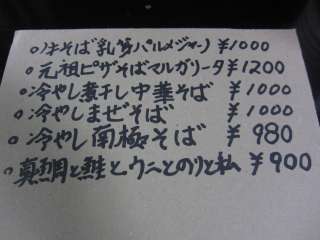 ○汁そば乳質パルメジャーノ ¥1000
○元祖ピザそばマルガリータ¥1200
○冷やし煮干し中華そば ¥1000
○冷やしまぜそば ¥1000
○冷やし南極そば ¥980
○真鯛と鮭とウニとのりと私 ¥900